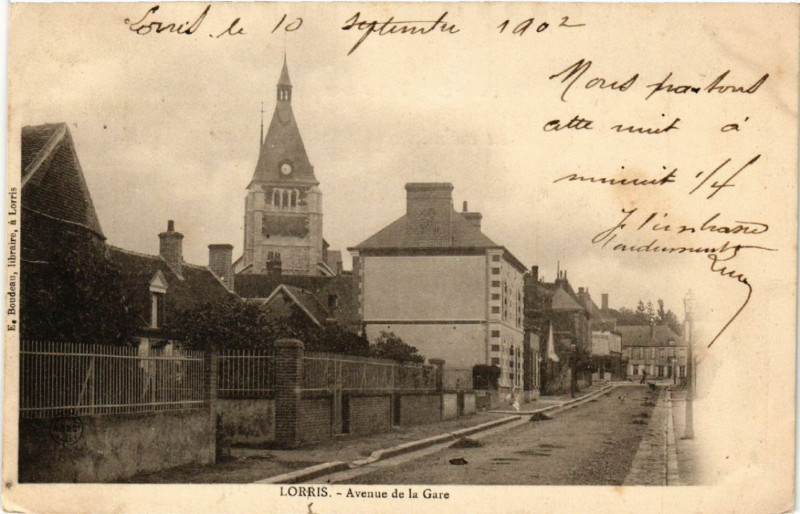 Lorris, le 10 septembre 1902
Nous partons
cette nuit à
minuit 1/4
Je t'embrasse
tendrement
E. Boudeau, libraire, à Lorris
LORRIS. - Avenue de la Gare